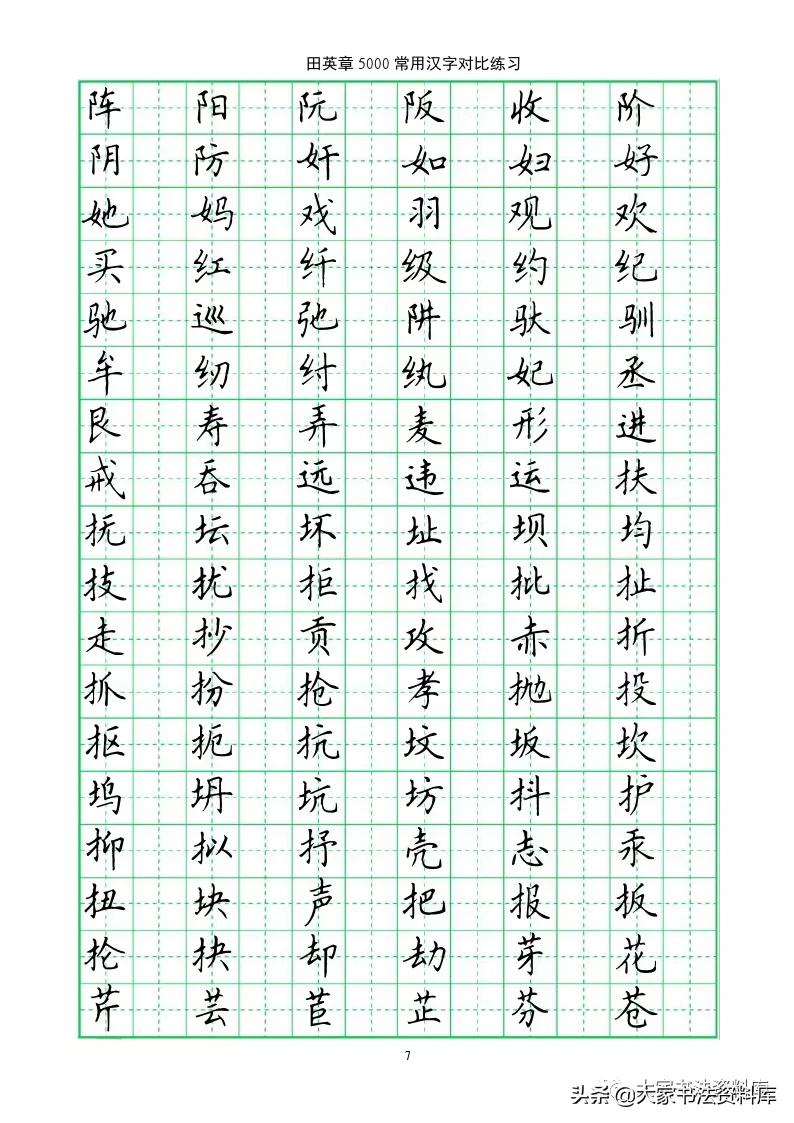 田英章5000常用汉字对比练习
阵 阳 阮 阪 收 阶
阴 防 奸 如 妇 好
她 妈 戏 羽 观 欢
买 红 纤 级 约 纪
驰 巡 弛 阱 驮 驯
牟 纫 纣 纨 妃 丞
艮 寿 弄 麦 形 进
戒 吞 远 违 运 扶
抚 坛 坏 址 坝 均
技 扰 拒 找 批 扯
走 抄 贡 攻 赤 折
抓 扮 抢 孝 抛 投
抠 扼 抗 坟 坂 坎
坞 坍 坑 坊 抖 护
抑 拟 抒 壳 志 汞
扭 块 声 把 报 扳
抡 抉 却 劫 芽 花
芹 芸 苣 芷 芬 苍
7
头条 @大家书法资料库